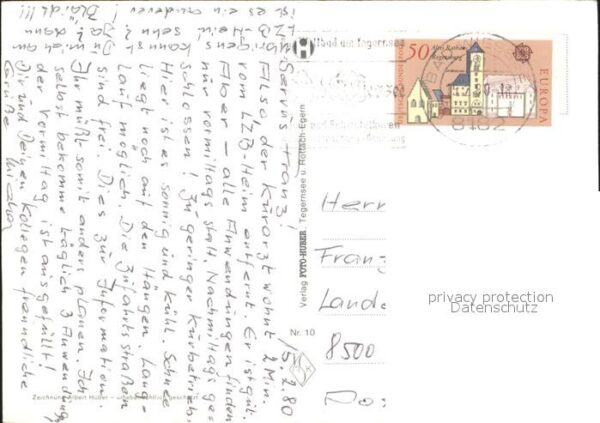 15.2.80
Servus Franz!
Also, der Kurarzt wohnt 2 Min.
vom LZB-Heim entfernt. Er ist gut.
Aber – alle Anwendungen finden
nur vormittags statt. Nachmittags ge-
schlossen! In geringer Kurbetrieb.
Hier ist es sonnig und kühl. Schnee
liegt noch auf den Hängen. Lang-
lauf möglich. Die Zufahrtsstraßen
sind frei. Dies zur Information.
Ihr müßt somit anders planen. Ich
selbst bekomme täglich 3 Anwendung
der Vormittag ist ausgefüllt!
Dir und Deinen Kollegen freundliche
Grüße
Übrigens
LZB-Heim
kannst
Du
sehn?
dann
ist es ein anderer!
Herr
Franz
Lande
8500
Po
privacy protection
Datenschutz
Verlag FOTO-HUBER, Tegernsee u. Rottach-Egern
Nr. 10
Zeichnung Albert Huber – urheberrechtlich geschützt
50
Altes Rathaus
Regensburg
DEUTSCHE BUNDESPOST
EUROPA
bad am Tegernsee
8182